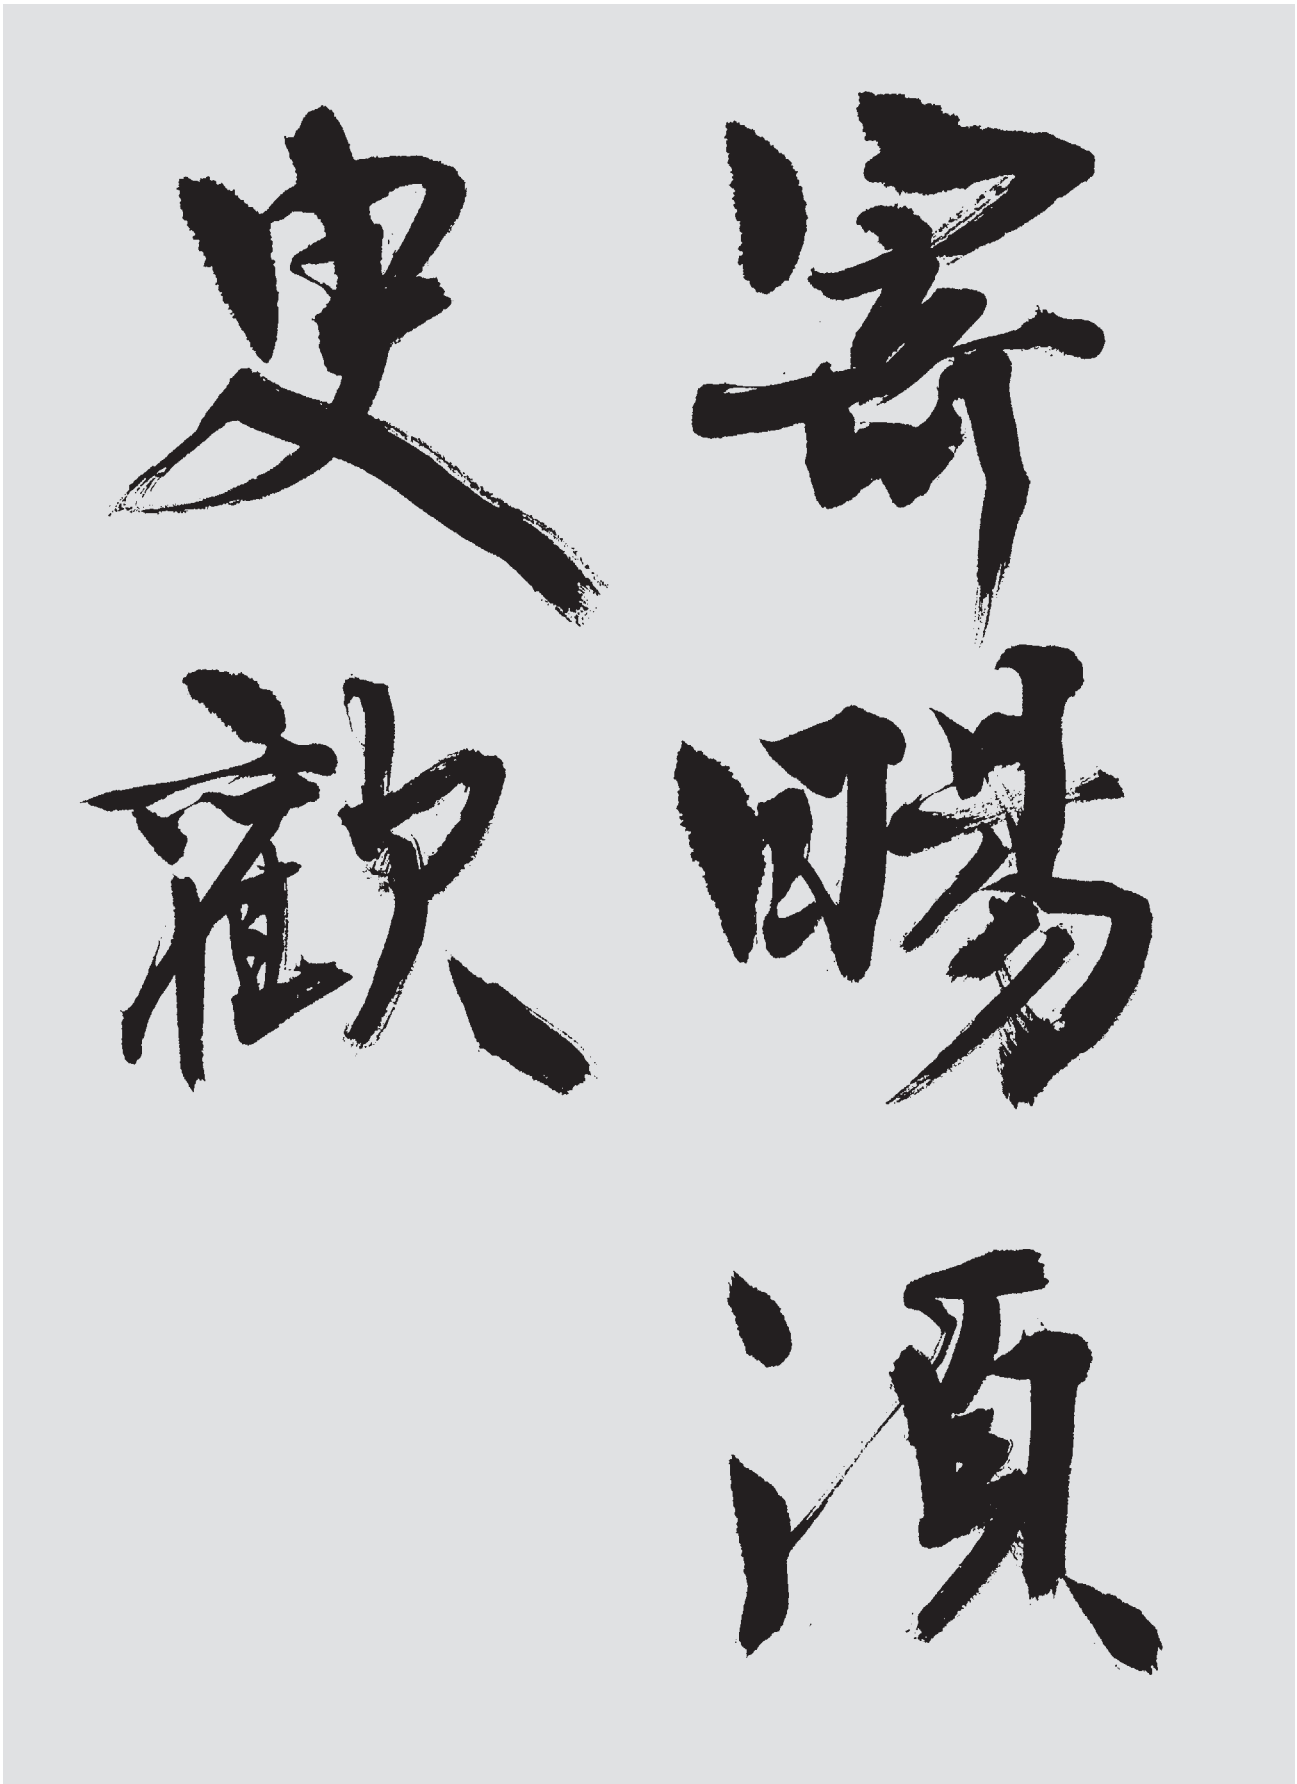 寄暢湏
臾歡